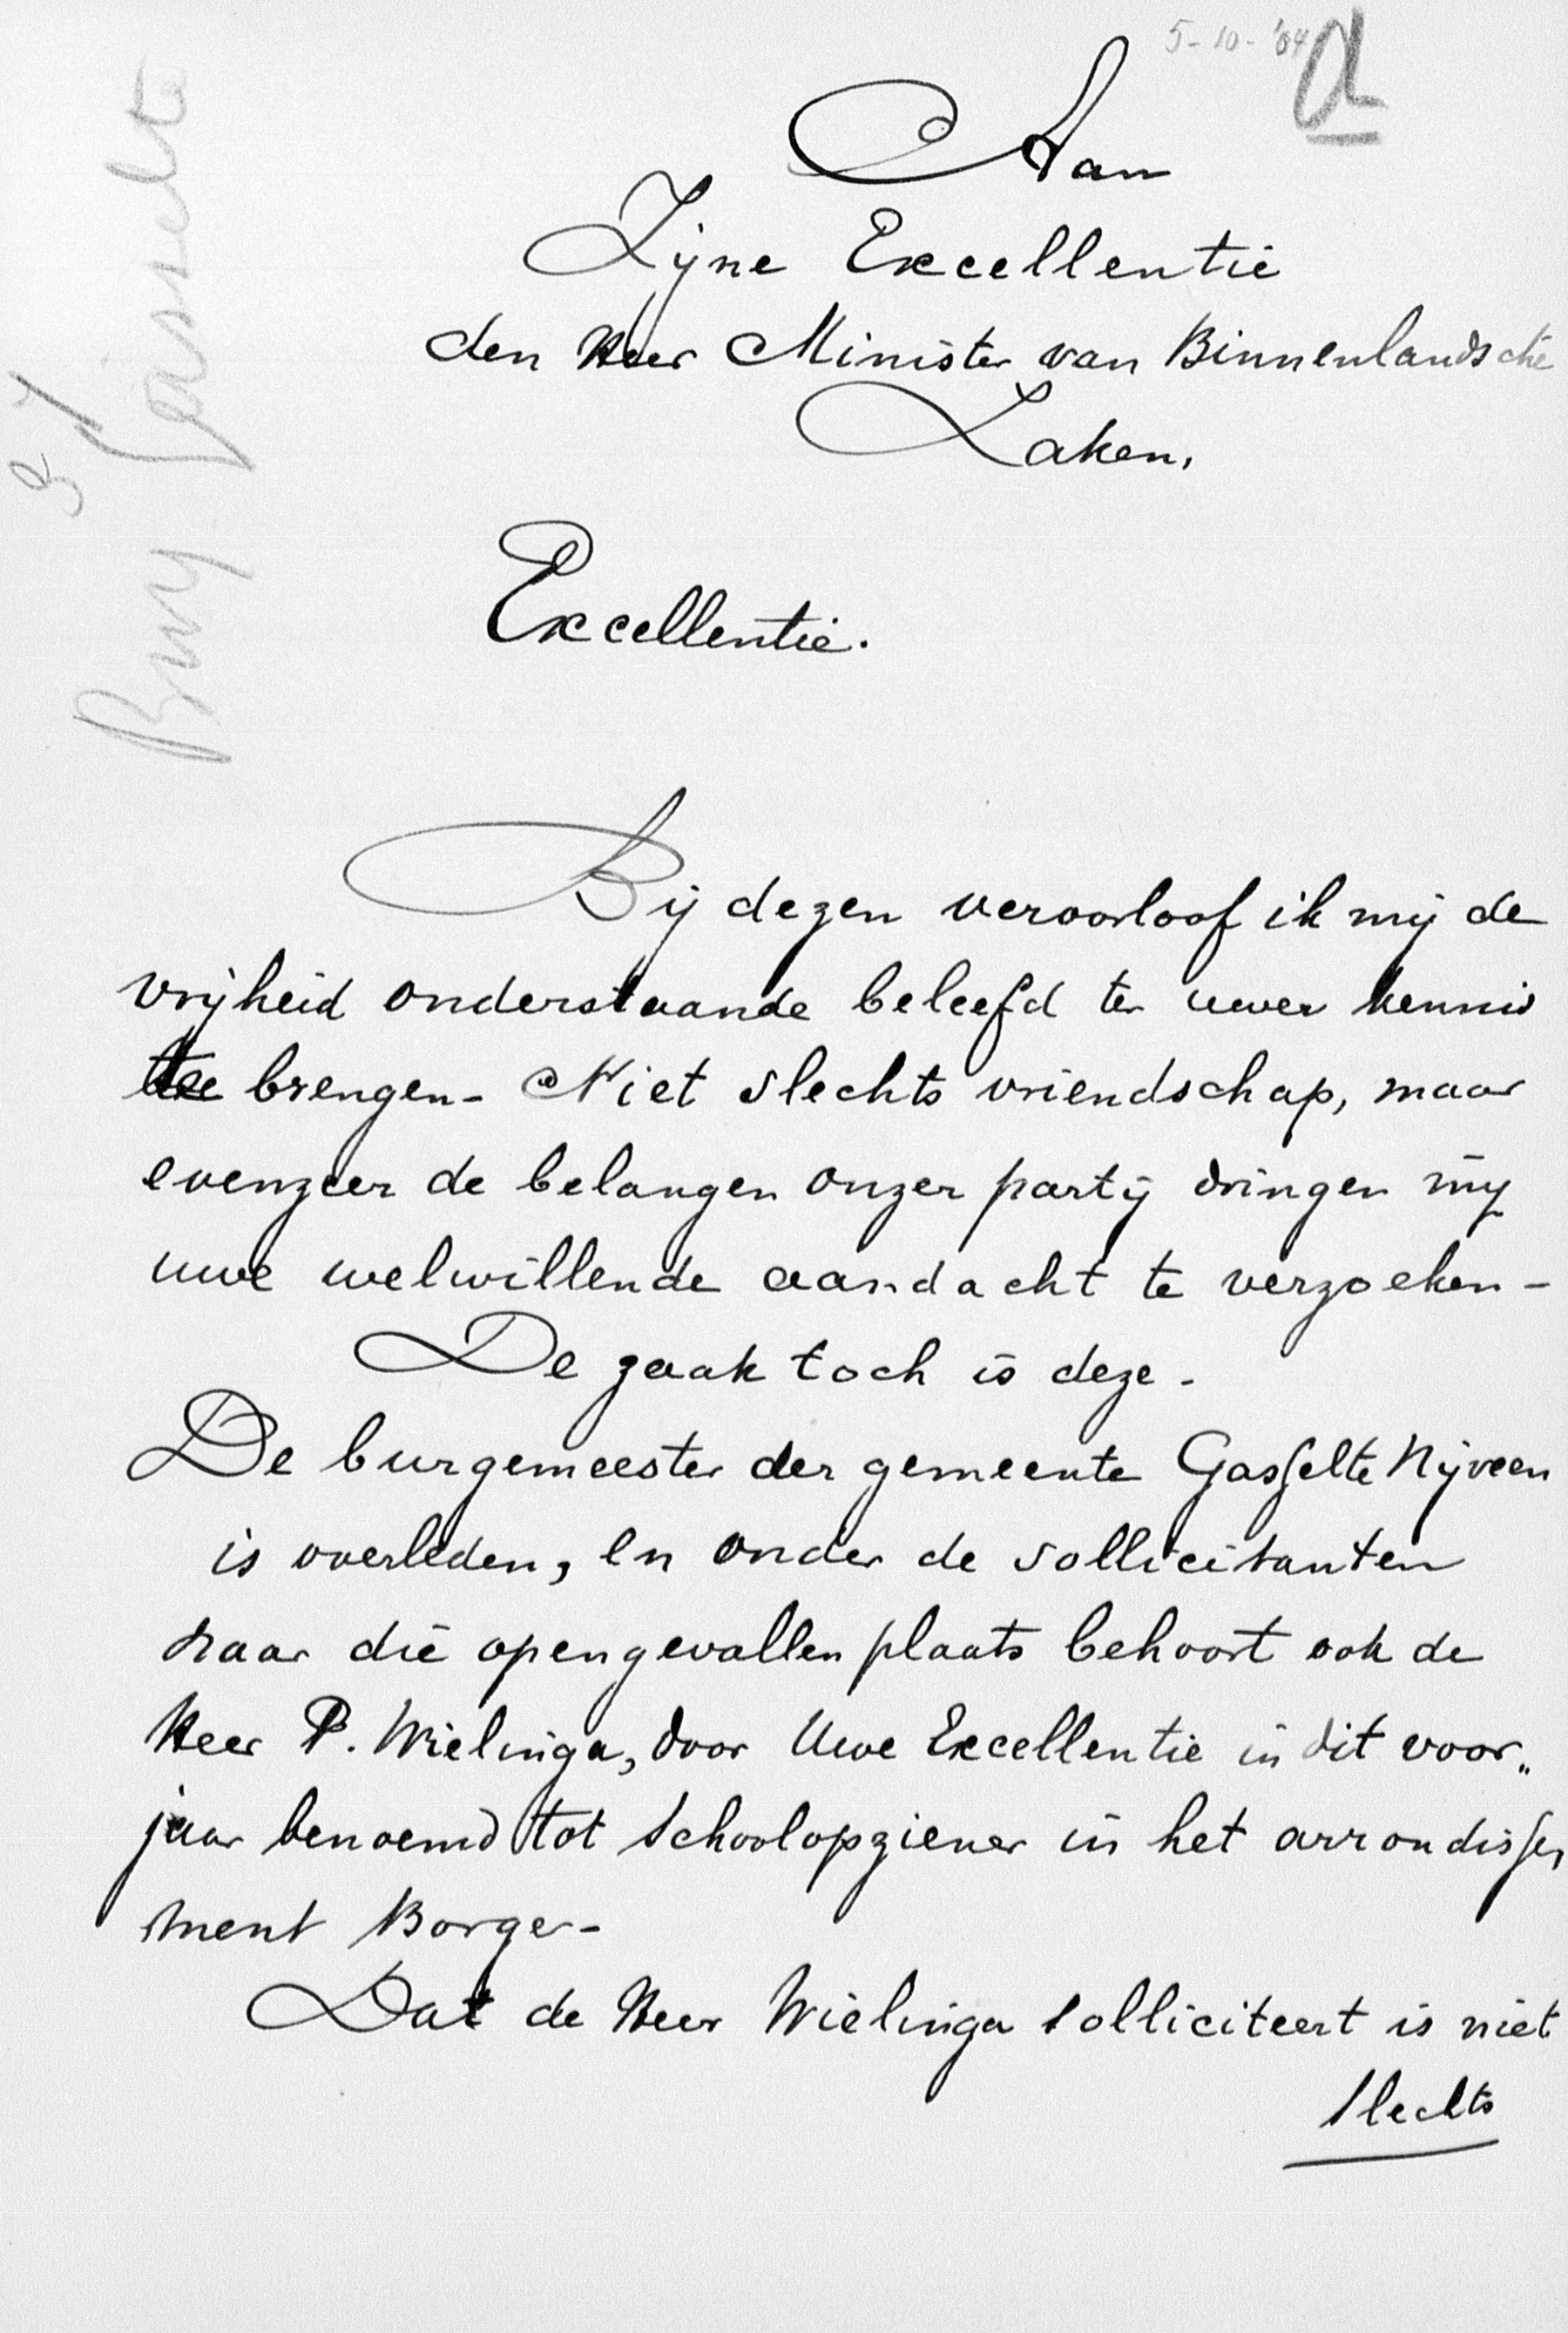 5-10-'04
a
Aan
Zijne Excellentie
den Heer Minister van Binnenlandsche
Zaken.
Excellentie.
Bij dezen veroorloof ik mij de
vrijheid onderstaande beleefd ter uwer kennis
te brengen- Niet slechts vriendschap, maar
evenzeer de belangen onzer partij dringen mij
uwe welwillende aandacht te verzoeken-
De zaak toch is deze-
De burgemeester der gemeente Gasselte Nijveen
is overleden, en onder de sollicitanten
naar die opengevallen plaats behoort ook de
Heer P. Wielinga, door Uwe Excellentie in dit voor„
jaar benoemd tot schoolopziener in het arrondisse„
ment Borger-
Dat de Heer Wielinga solliciteert is niet
slechts